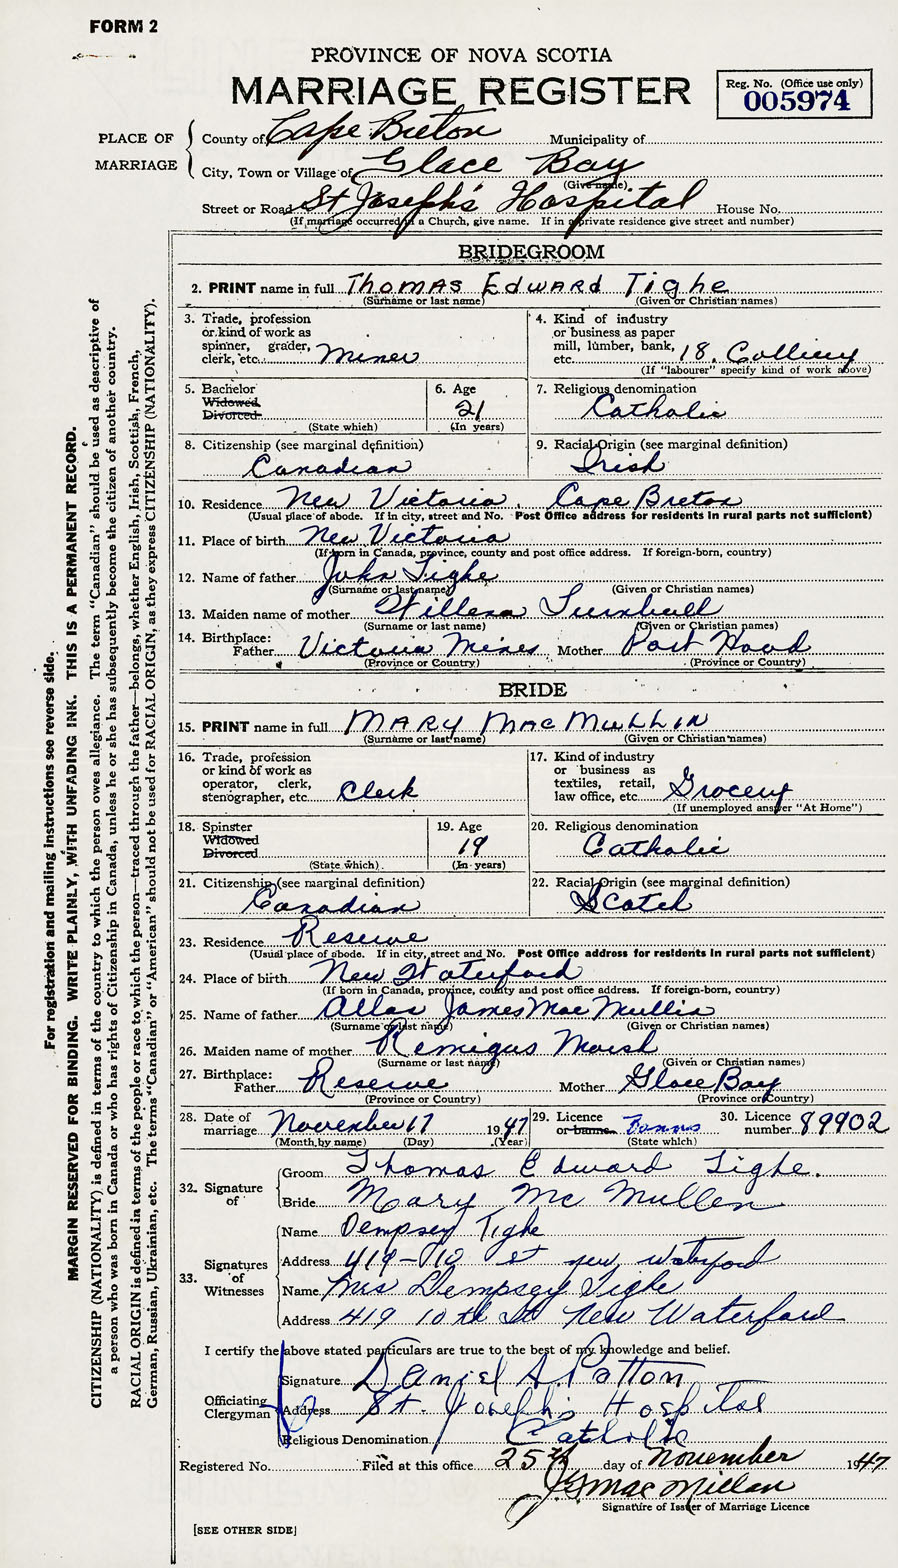 FORM 2
PROVINCE OF NOVA SCOTIA
MARRIAGE REGISTER
Reg. No. (Office use only)
005974
PLACE OF MARRIAGE
County of Cape Breton Municipality of
City, Town or Village of Glace Bay
(Give name)
Street or Road St Joseph's Hospital House No.
(If marriage occurred in a Church, give name. If in a private residence give street and number)
BRIDEGROOM
2. PRINT name in full Thomas Edward Tighe
(Surname or last name) (Given or Christian names)
3. Trade, profession or kind of work as spinner, grader, clerk, etc. Miner
4. Kind of industry or business as paper mill, lumber, bank, etc. 18. Colliery
(If "labourer" specify kind of work above)
5. Bachelor Widowed Divorced
(State which)
6. Age 21
(In years)
7. Religious denomination
Catholic
8. Citizenship (see marginal definition)
Canadian
9. Racial Origin (see marginal definition)
Irish
10. Residence New Victoria, Cape Breton
(Usual place of abode. If in city, street and No. Post Office address for residents in rural parts not sufficient)
11. Place of birth New Victoria
(If born in Canada, province, county and post office address. If foreign-born, country)
12. Name of father John Tighe
(Surname or last name) (Given or Christian names)
13. Maiden name of mother Willena Turnbull
(Surname or last name) (Given or Christian names)
14. Birthplace: Father Victoria Mines Mother Port Hood
(Province or Country) (Province or Country)
BRIDE
15. PRINT name in full MARY MACMULLIN
(Surname or last name) (Given or Christian names)
16. Trade, profession or kind of work as operator, clerk, stenographer, etc. Clerk
17. Kind of industry or business as textiles, retail, law office, etc. Grocery
(If unemployed answer "At Home")
18. Spinster Widowed Divorced
(State which)
19. Age 19
(In years)
20. Religious denomination
Catholic
21. Citizenship (see marginal definition)
Canadian
22. Racial Origin (see marginal definition)
Scotch
23. Residence Reserve
(Usual place of abode. If in city, street and No. Post Office address for residents in rural parts not sufficient)
24. Place of birth New Waterford
(If born in Canada, province, county and post office address. If foreign-born, country)
25. Name of father Allan James MacMullin
(Surname or last name) (Given or Christian names)
26. Maiden name of mother Remigus Marsh
(Surname or last name) (Given or Christian names)
27. Birthplace: Father Reserve Mother Glace Bay
(Province or Country) (Province or Country)
28. Date of marriage November 17 1947
(Month by name) (Day) (Year)
29. Licence or banns Banns
(State which)
30. Licence number 89902
32. Signature of
Groom Thomas Edward Tighe.
Bride Mary Mc Mullen
33. Signatures of Witnesses
Name Dempsey Tighe
Address 419-10 st new waterford
Name Mrs Dempsey Tighe
Address 419 10th St New Waterford
I certify the above stated particulars are true to the best of my knowledge and belief.
Officiating Clergyman
Signature Daniel A. Patton
Address St. Joseph's Hospital
Religious Denomination Catholic
Registered No. Filed at this office 25th day of November 1947
MacMillan
Signature of Issuer of Marriage Licence
[SEE OTHER SIDE]
For registration and mailing instructions see reverse side.
MARGIN RESERVED FOR BINDING. WRITE PLAINLY, WITH UNFADING INK. THIS IS A PERMANENT RECORD.
CITIZENSHIP (NATIONALITY) is defined in terms of the country to which the person owes allegiance. The term "Canadian" should be used as descriptive of
a person who was born in Canada or who has rights of Citizenship in Canada, unless he or she has subsequently become the citizen of another country.
RACIAL ORIGIN is defined in terms of the people or race to which the person—traced through the father—belongs, whether English, Irish, Scottish, French,
German, Russian, Ukrainian, etc. The terms "Canadian" or "American" should not be used for RACIAL ORIGIN, as they express CITIZENSHIP (NATIONALITY).